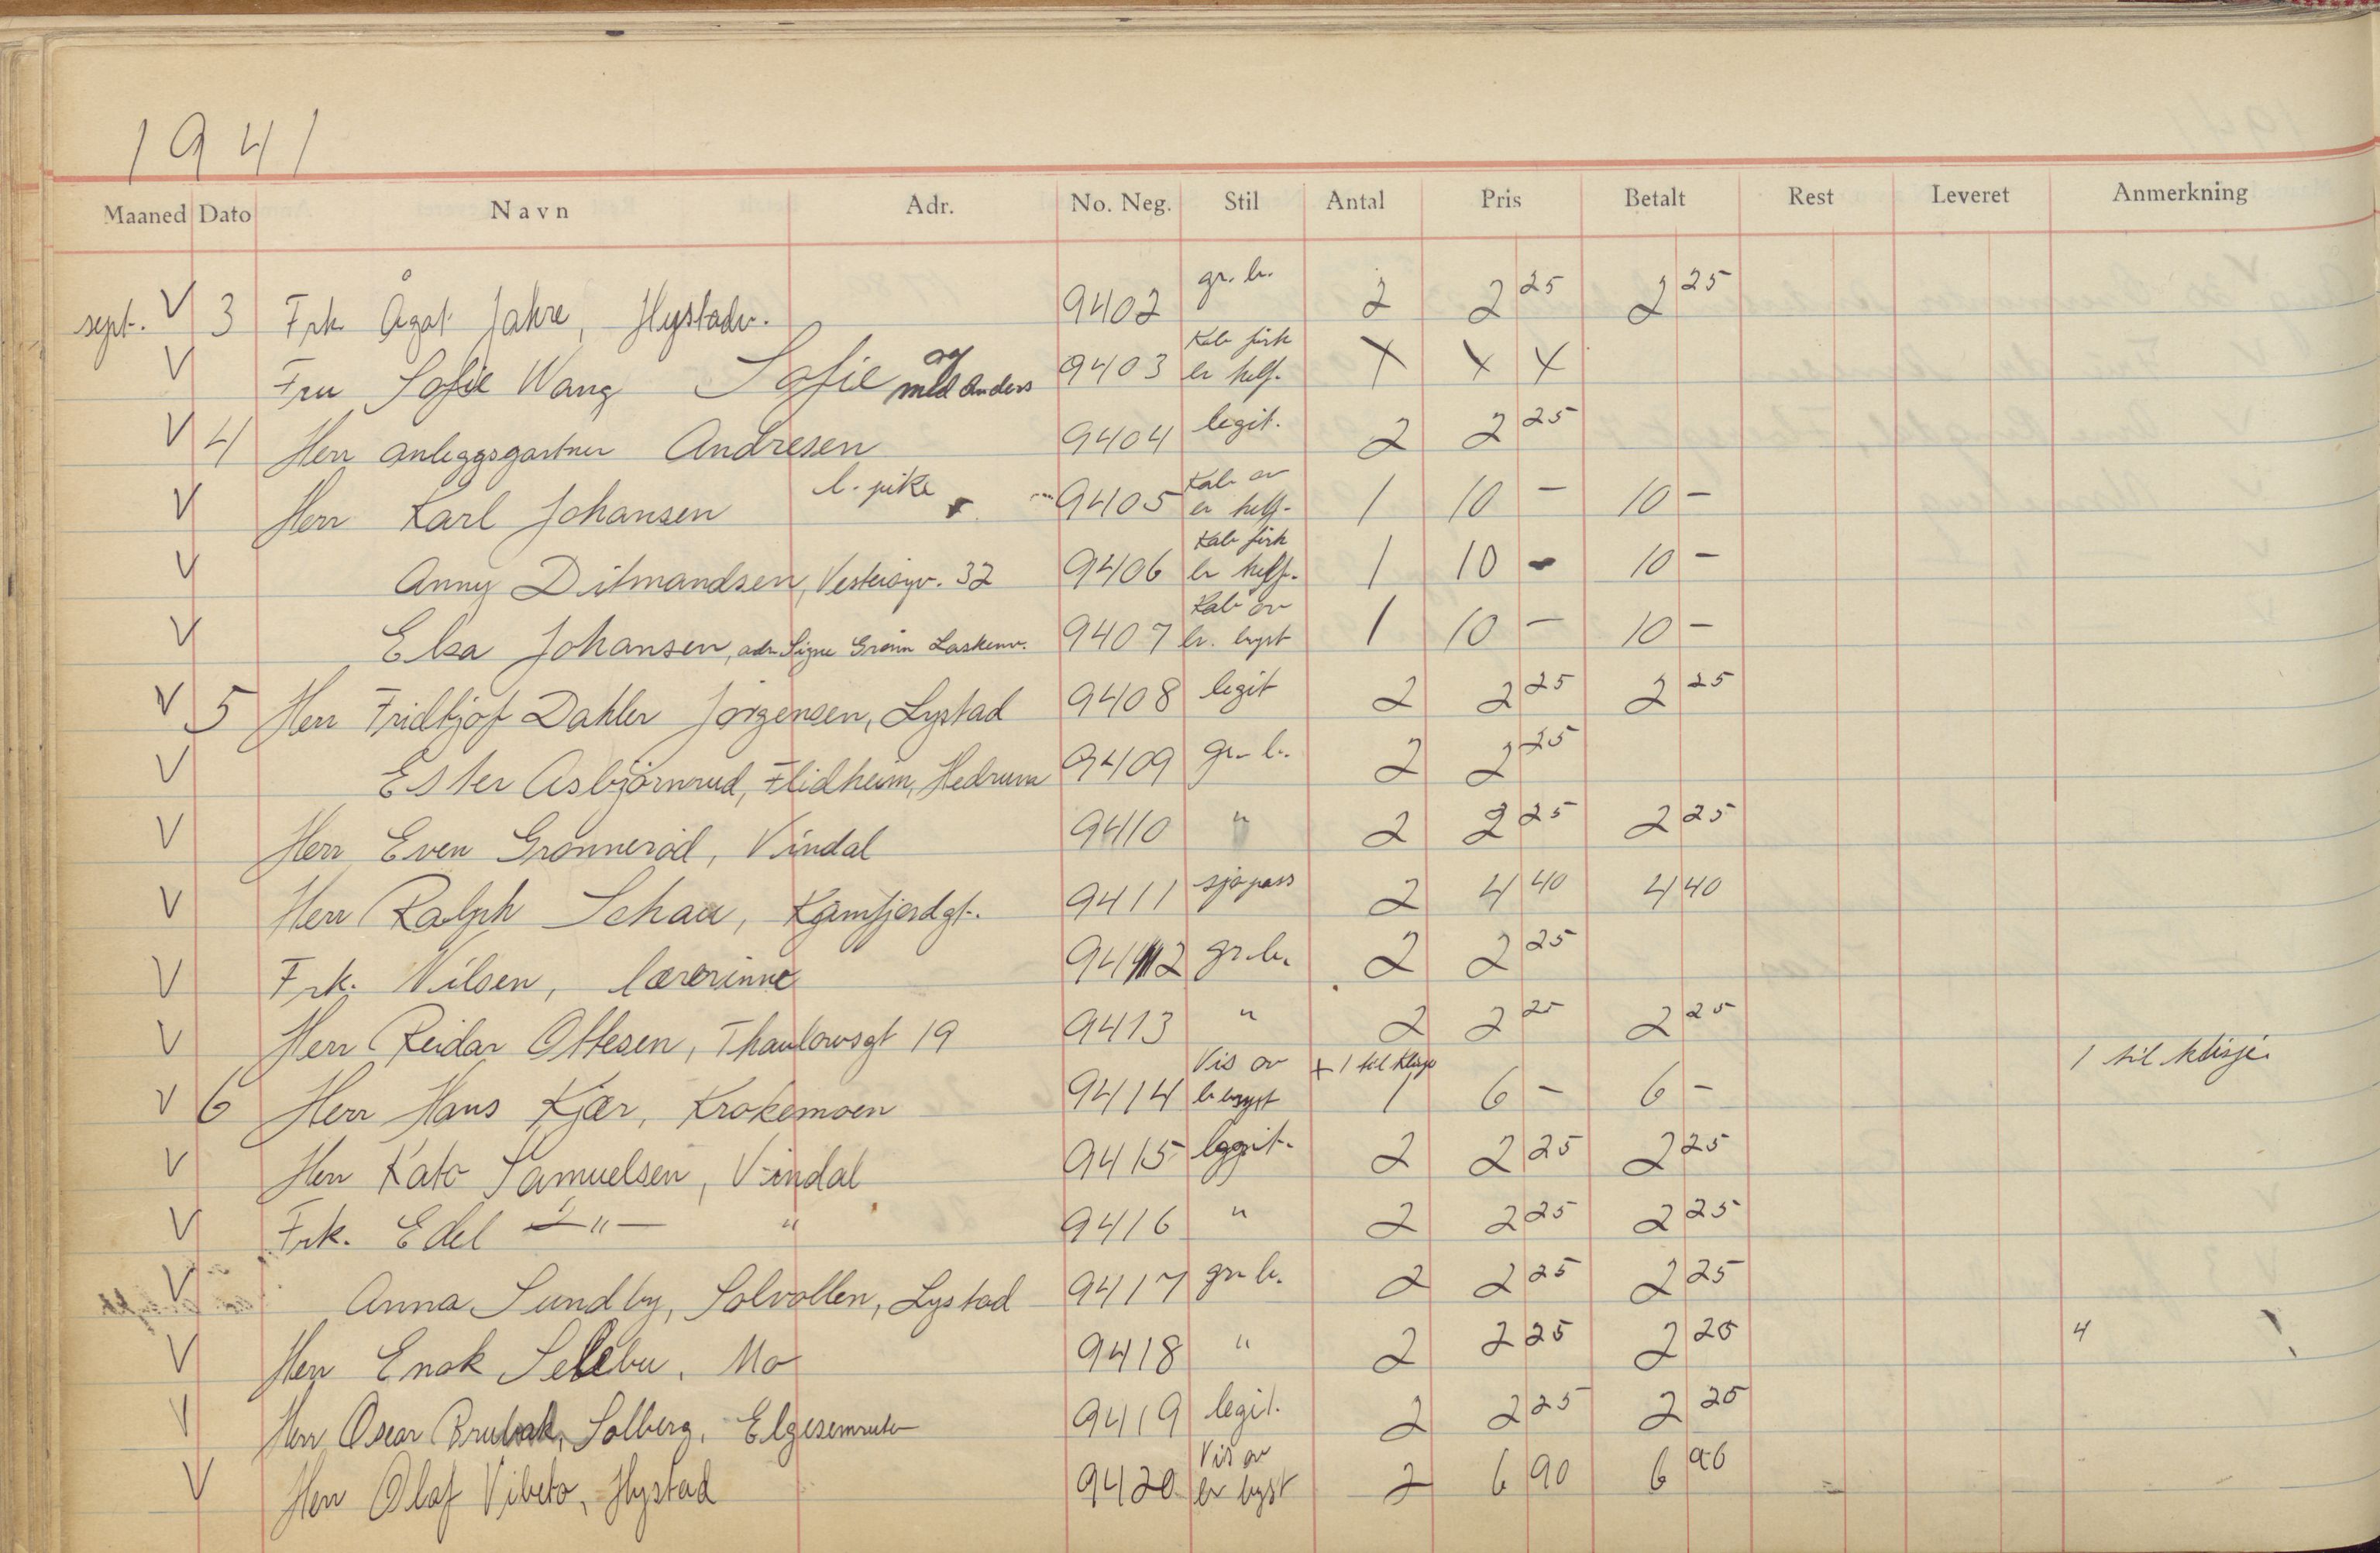 1941
Maaned Dato Navn Adr. No. Neg. Stil Antal Pris Betalt Rest Leveret Anmerkning
sept. V 3 Frk. Ågot Jahre, Hystadv. 9402 gr. br. 2 2 25 2 25
V Fru Sofie Wang Sofie og med Anders 9403 Kab firk er helf. X X X
V 4 Herr anleggsgartner Andresen 9404 legit. 2 2 25
V Herr Karl Johansen l. pike 9405 Kab ov er helf. 1 10 - 10 -
V Anny Ditmandsen, Vesterøyv. 32 9406 Kab firk er helf. 1 10 - 10 -
V Elsa Johansen, adr Signe Grønn Laskenv. 9407 Kab ov br. byst 1 10 - 10 -
V 5 Herr Fridtjof Dahler Jørgensen, Lystad 9408 legit 2 2 25 2 25
V Ester Asbjørnrud, Flidheim, Hedrum 9409 gr. b. 2 2 25
V Herr Even Grønnerød, Vindal 9410 " 2 2 25 2 25
V Herr Ralph Schau, Kamfjordgt. 9411 sjøpass 2 4 40 4 40
V Frk. Nilsen, lærerinne 9412 gr. br. 2 2 25
V Herr Reidar Ottesen, Thaulowsgt 19 9413 " 2 2 25 2 25
V 6 Herr Hans Kjær, Krokemoen 9414 Vis ov br byst + 1 til klisje 1 6 - 6 - 1 til klisje.
V Herr Kato Samuelsen, Vindal 9415 legit. 2 2 25 2 25
V Frk. Edel — " — " 9416 " 2 2 25 2 25
V Anna Sundby, Solvollen, Lystad 9417 gr. br. 2 2 25 2 25
V Herr Enok Selebu, Mo 9418 " 2 2 25 2 25 4
V Herr Oscar Solberg, 9419 legit. 2 2 25 2 25
V Herr Olaf Vibeto, Hystad 9420 Vis ov er byst 2 6 90 6 90